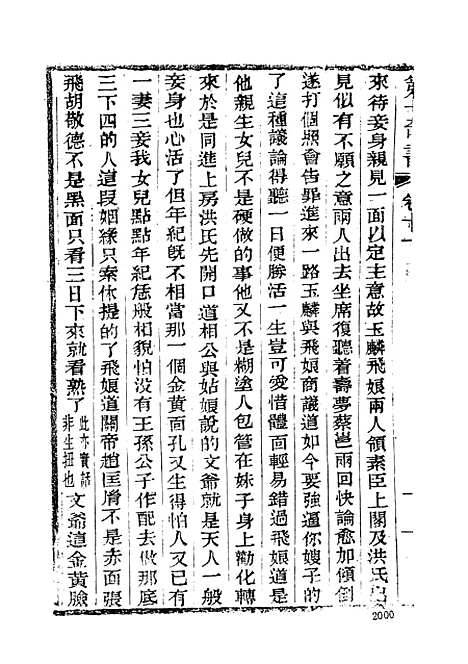 第十八回 卷十一
來待妾身親見一面以定主意故玉麟飛娘兩人領素臣上閣及洪氏出
見似有不願之意兩人出去坐席復聽着壽夢蔡邕兩回快論愈加傾倒
遂打個照會告罪進來一路玉麟與飛娘商議道如今要強逼你嫂子的
了這種議論得聽一日便勝活一生豈可愛惜體面輕易錯過飛娘道是
他親生女兒不是硬做的事他又不是糊塗人包管在妹子身上勸化轉
來於是同進上房洪氏先開口道相公與姑娘說的文爺就是天人一般
妾身也心活了但年紀旣不相當那一個金黃面孔又生得怕人又已有
一妻三妾我女兒點點年紀恁般相貌怕沒有王孫公子作配去做那底
三下四的人這段姻緣只索休提的了飛娘道關帝趙匡胤不是赤面張
飛胡敬德不是黑面只看三日下來就看熟了此亦實話非生扭也文爺這金黃臉
2000